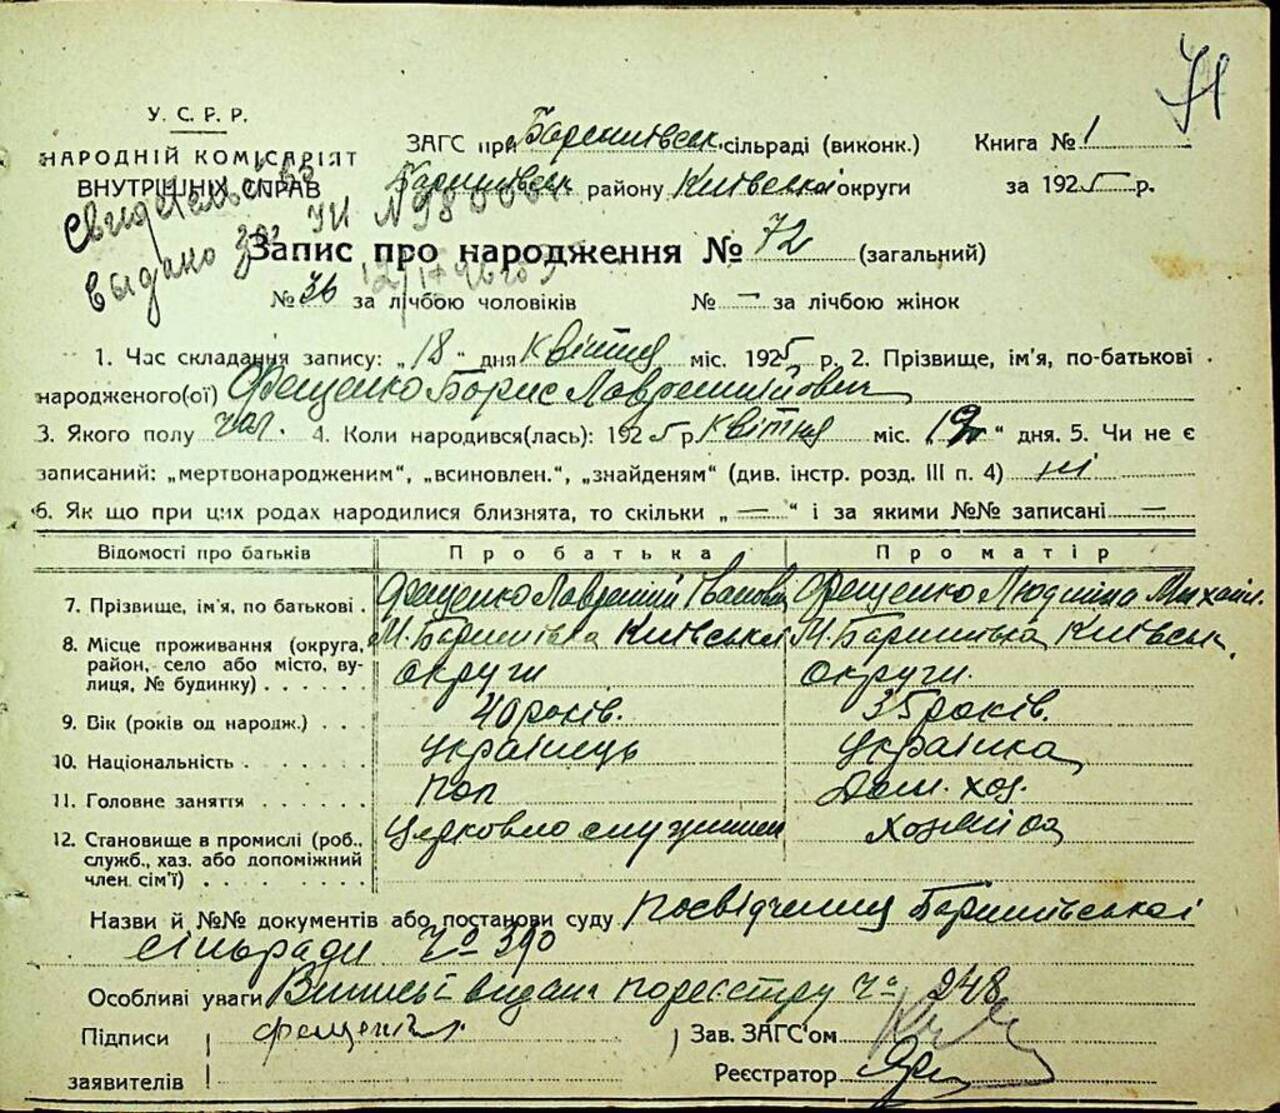 71
У. С. Р. Р.
НАРОДНІЙ КОМІСАРІЯТ
ВНУТРІШНІХ СПРАВ
ЗАГС при Баришівськ. сільраді (виконк.)
Книга № 1
Баришівськ району Київської округи
за 1925 р.
Свидетельство
выдано
Запис про народження № 72 (загальний)
№ 36 за лічбою чоловіків № — за лічбою жінок
1. Час складання запису: „18“ дня квітня міс. 1925 р. 2. Прізвище, ім'я, по-батькові
народженого(ої) Фещенко Борис Лаврентійович
3. Якого полу чол. 4. Коли народився(лась): 1925 р. квітня міс. „ “ дня. 5. Чи не є
записаний: „мертвонародженим“, „всиновлен.“, „знайденям“ (див. інстр. розд. III п. 4) ні
6. Як що при цих родах народилися близнята, то скільки „ — “ і за якими №№ записані —
Відомості про батьків Про батька Про матір
7. Прізвище, ім'я, по батькові . Фещенко Лаврентій Іванов Фещенко Людмила Михайл.
8. Місце проживання (округа, район, село або місто, вулиця, № будинку) . . . . . . М. Баришівка Київської округи М. Баришівка Київськ. округи.
9. Вік (років од народж.) . . . 40 років. 35 років.
10. Національність . . . . . . . Українець Українка
11. Головне заняття . . . . . . Поп Дом. хоз.
12. Становище в промислі (роб., служб., хаз. або допоміжний член. сім'ї) . . . . . . . Церковно служитель хозяйка
Назви й №№ документів або постанови суду посвідчення Баришівської
сільради Ч° 390
Особливі уваги Випись видана по реєстру Ч° 248
Підписи
заявителів
Зав. ЗАГС'ом
Реєстратор